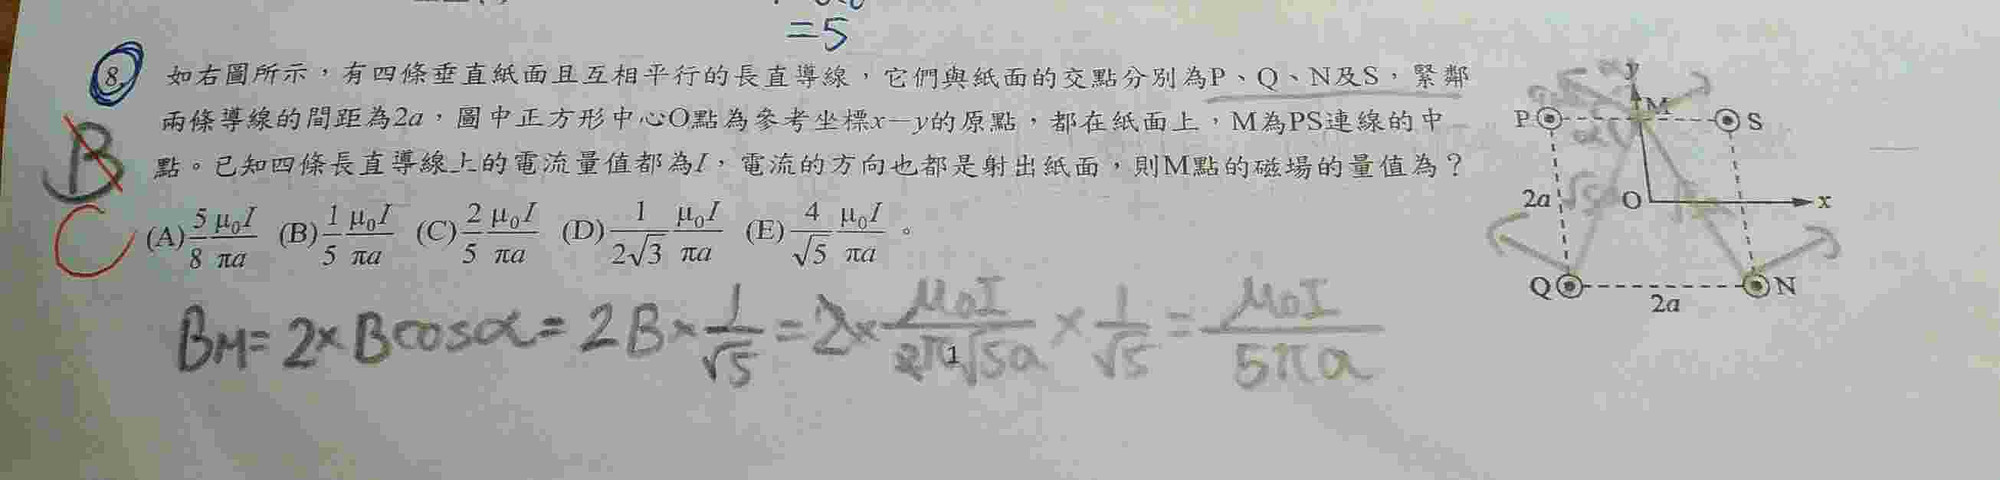 =5
8. 如右圖所示，有四條垂直紙面且互相平行的長直導線，它們與紙面的交點分別為P、Q、N及S，緊鄰
兩條導線的間距為2a，圖中正方形中心O點為參考坐標x－y的原點，都在紙面上，M為PS連線的中
點。已知四條長直導線上的電流量值都為I，電流的方向也都是射出紙面，則M點的磁場的量值為？
B
C
(A) 5/8 μ₀I/πa (B) 1/5 μ₀I/πa (C) 2/5 μ₀I/πa (D) 1/2√3 μ₀I/πa (E) 4/√5 μ₀I/πa 。
BM = 2×Bcosα = 2B×1/√5 = 2×μ₀I/2π√5a × 1/√5 = μ₀I/5πa
1
y
P M S
2a O x
Q N
2a